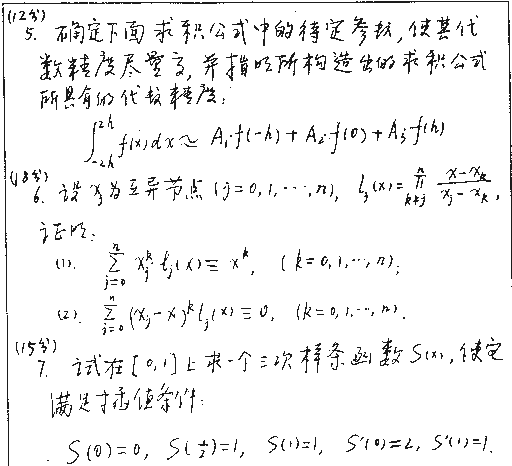 (12分)
5. 确定下面求积公式中的待定参数,使其代
数精度尽量高,并指明所构造出的求积公式
所具有的代数精度:
∫_{-2h}^{2h} f(x)dx ≈ A₁f(-h) + A₂f(0) + A₃f(h)
(18分)
6. 设 xⱼ 为互异节点 (j=0,1,…,n), lⱼ(x) = ∏_{k≠j}^{n} (x-xₖ)/(xⱼ-xₖ),
证明:
(1). ∑_{j=0}^{n} xⱼᵏ lⱼ(x) ≡ xᵏ, (k=0,1,…,n);
(2). ∑_{j=0}^{n} (xⱼ-x)ᵏ lⱼ(x) ≡ 0, (k=0,1,…,n).
(15分)
7. 试在[0,1]上求一个三次样条函数S(x),使它
满足插值条件:
S(0)=0, S(1/2)=1, S(1)=1, S'(0)=2, S'(1)=1.